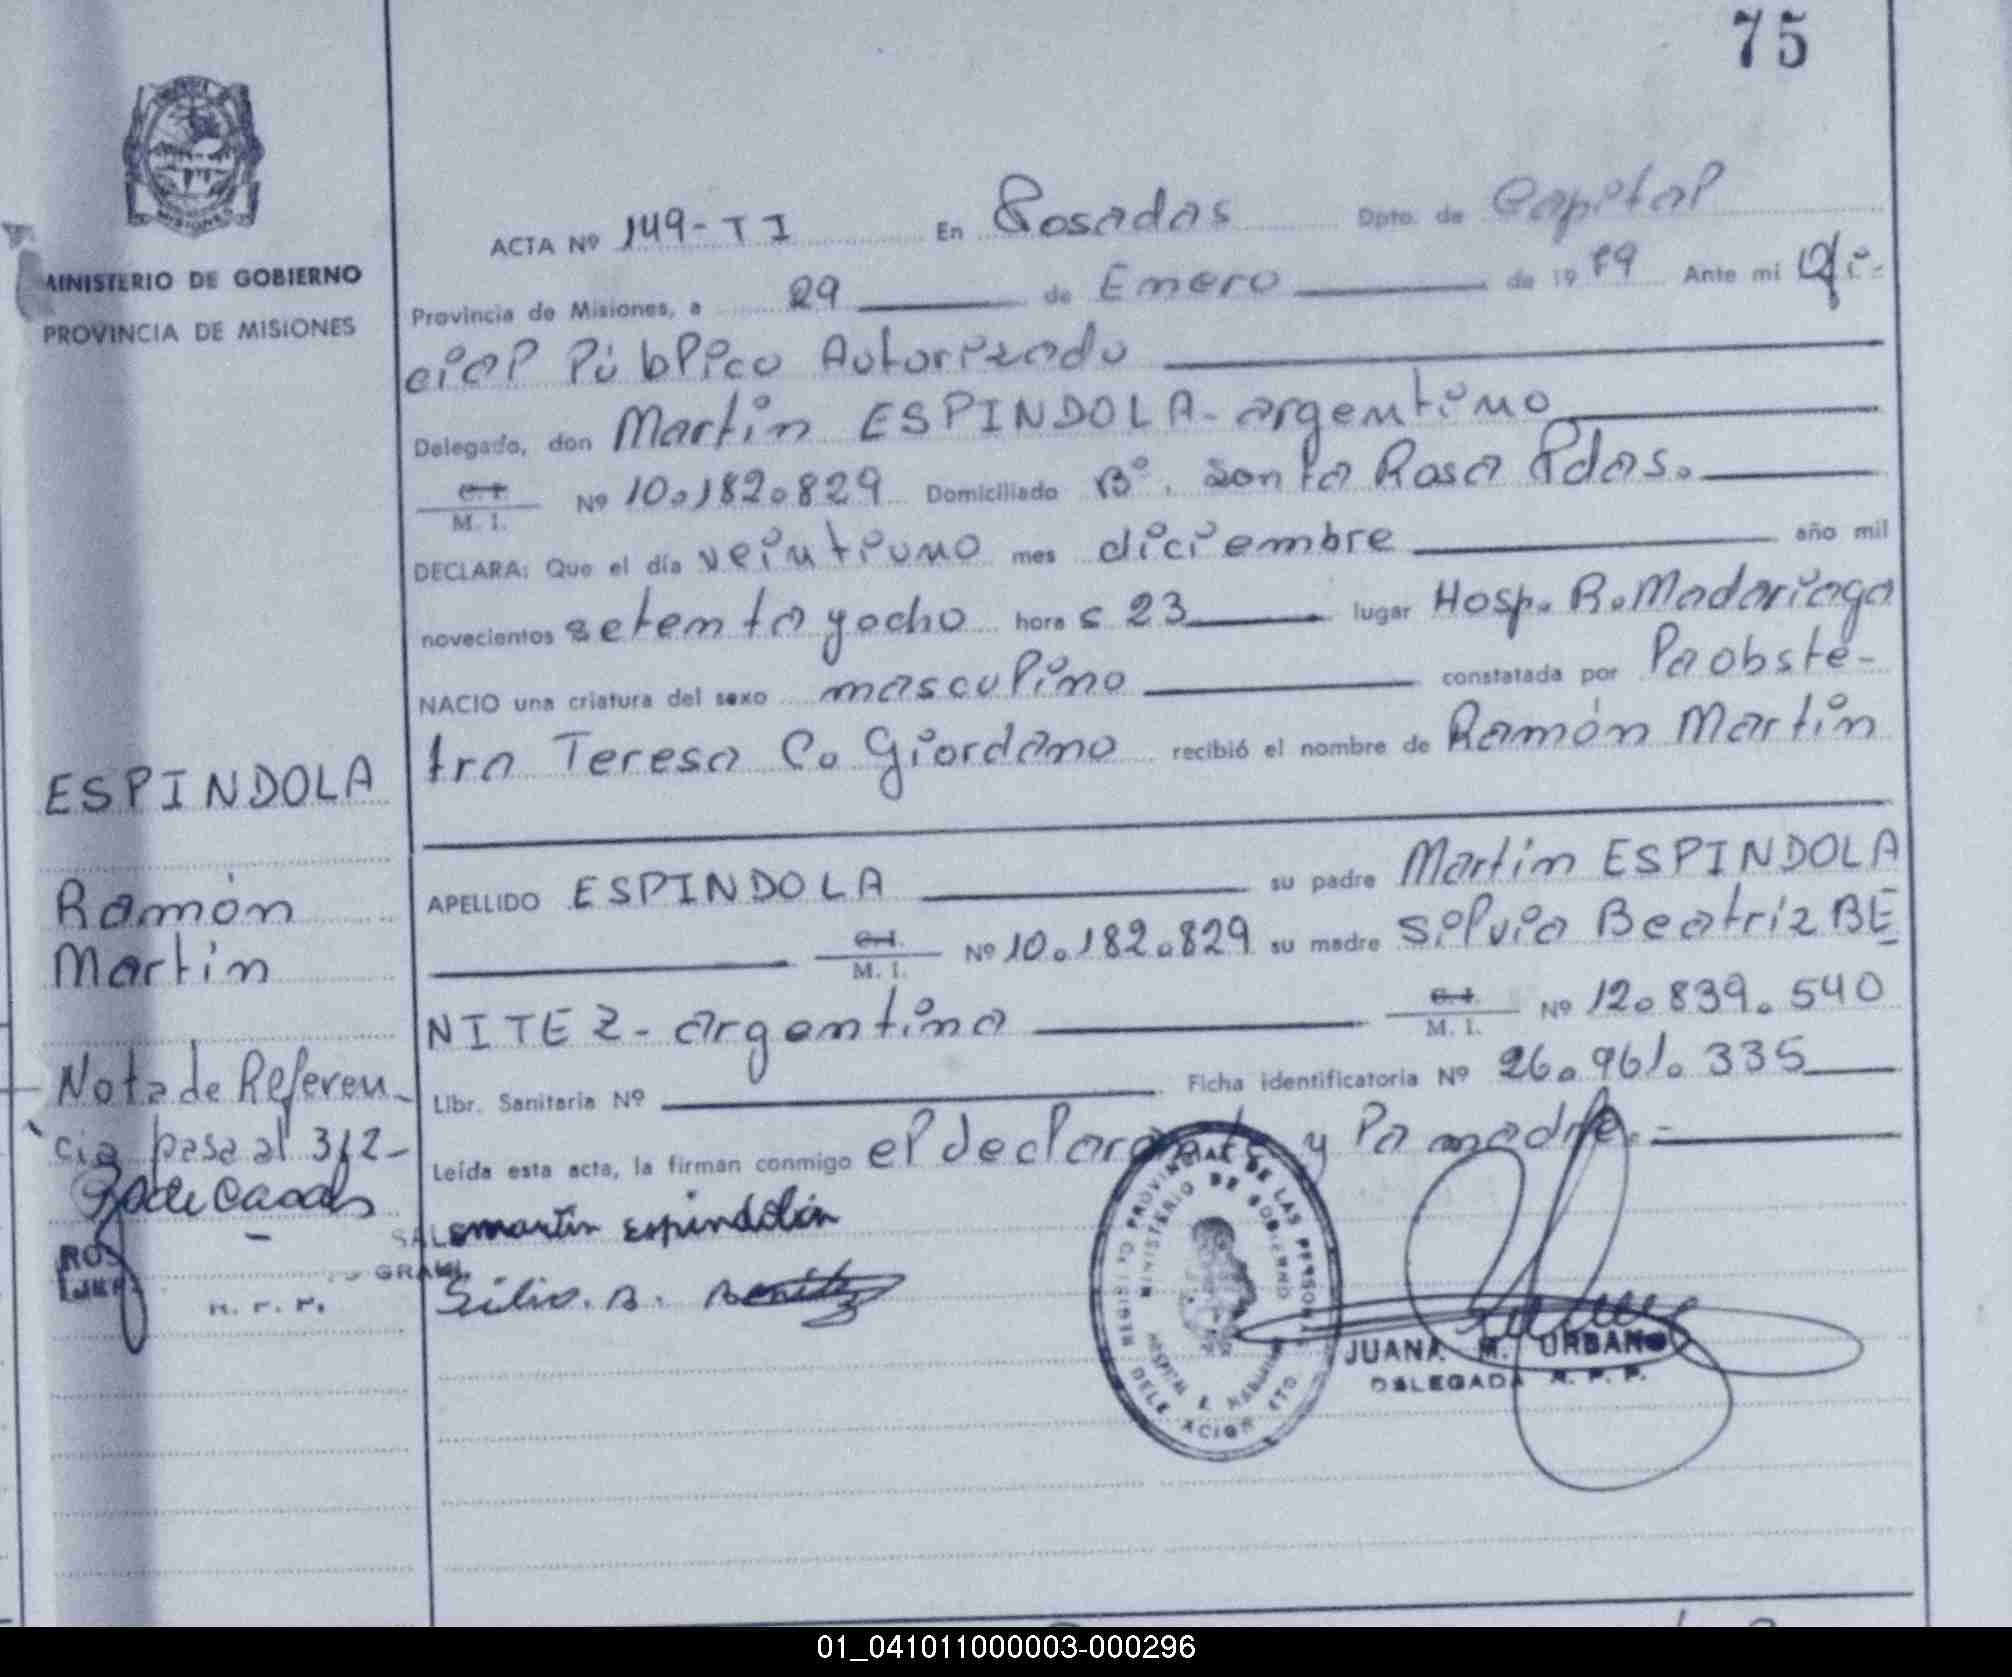 75
MINISTERIO DE GOBIERNO
PROVINCIA DE MISIONES
ACTA Nº 149-TI En Posadas Dpto. de Capital
Provincia de Misiones, a 29 de Enero de 1979 Ante mi Ofi-
cial Público Autorizado
Delegado, don Martin ESPINDOLA - argentino
C. I. M. I. Nº 10.182.829 Domiciliado Bº. Santa Rosa Pdas.
DECLARA: Que el día veintiuno mes diciembre año mil
novecientos setenta y ocho hora s 23 lugar Hosp. R. Madariaga
NACIO una criatura del sexo masculino constatada por la obste-
tra Teresa C. Giordano recibió el nombre de Ramón Martin
APELLIDO ESPINDOLA su padre Martin ESPINDOLA
C. I. M. I. Nº 10.182.829 su madre Silvia Beatriz BE
NITEZ - argentina C. I. M. I. Nº 12.839.540
Libr. Sanitaria Nº Ficha identificatoria Nº 26.961.335
Leída esta acta, la firman conmigo el declarante y la madre.-
martin espindola
Silvia. B. Benitez
ESPINDOLA
Ramón
Martin
Nota de Referen-
cia pasa al 312-
REGISTRO PROVINCIAL DE LAS PERSONAS
MINISTERIO DE GOBIERNO
HOSPITAL R. MADARIAGA
DELEGACION
JUANA M. URBANO
DELEGADA R. P. P.
01_041011000003-000296